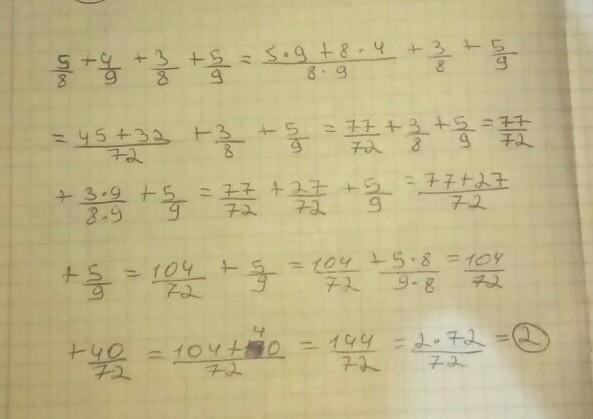 5/8 + 4/9 + 3/8 + 5/9 = (5·9 + 8·4)/(8·9) + 3/8 + 5/9
= (45+32)/72 + 3/8 + 5/9 = 77/72 + 3/8 + 5/9 = 77/72
+ (3·9)/(8·9) + 5/9 = 77/72 + 27/72 + 5/9 = (77+27)/72
+ 5/9 = 104/72 + 5/9 = 104/72 + (5·8)/(9·8) = 104/72
+ 40/72 = (104+40)/72 = 144/72 = (2·72)/72 = 2